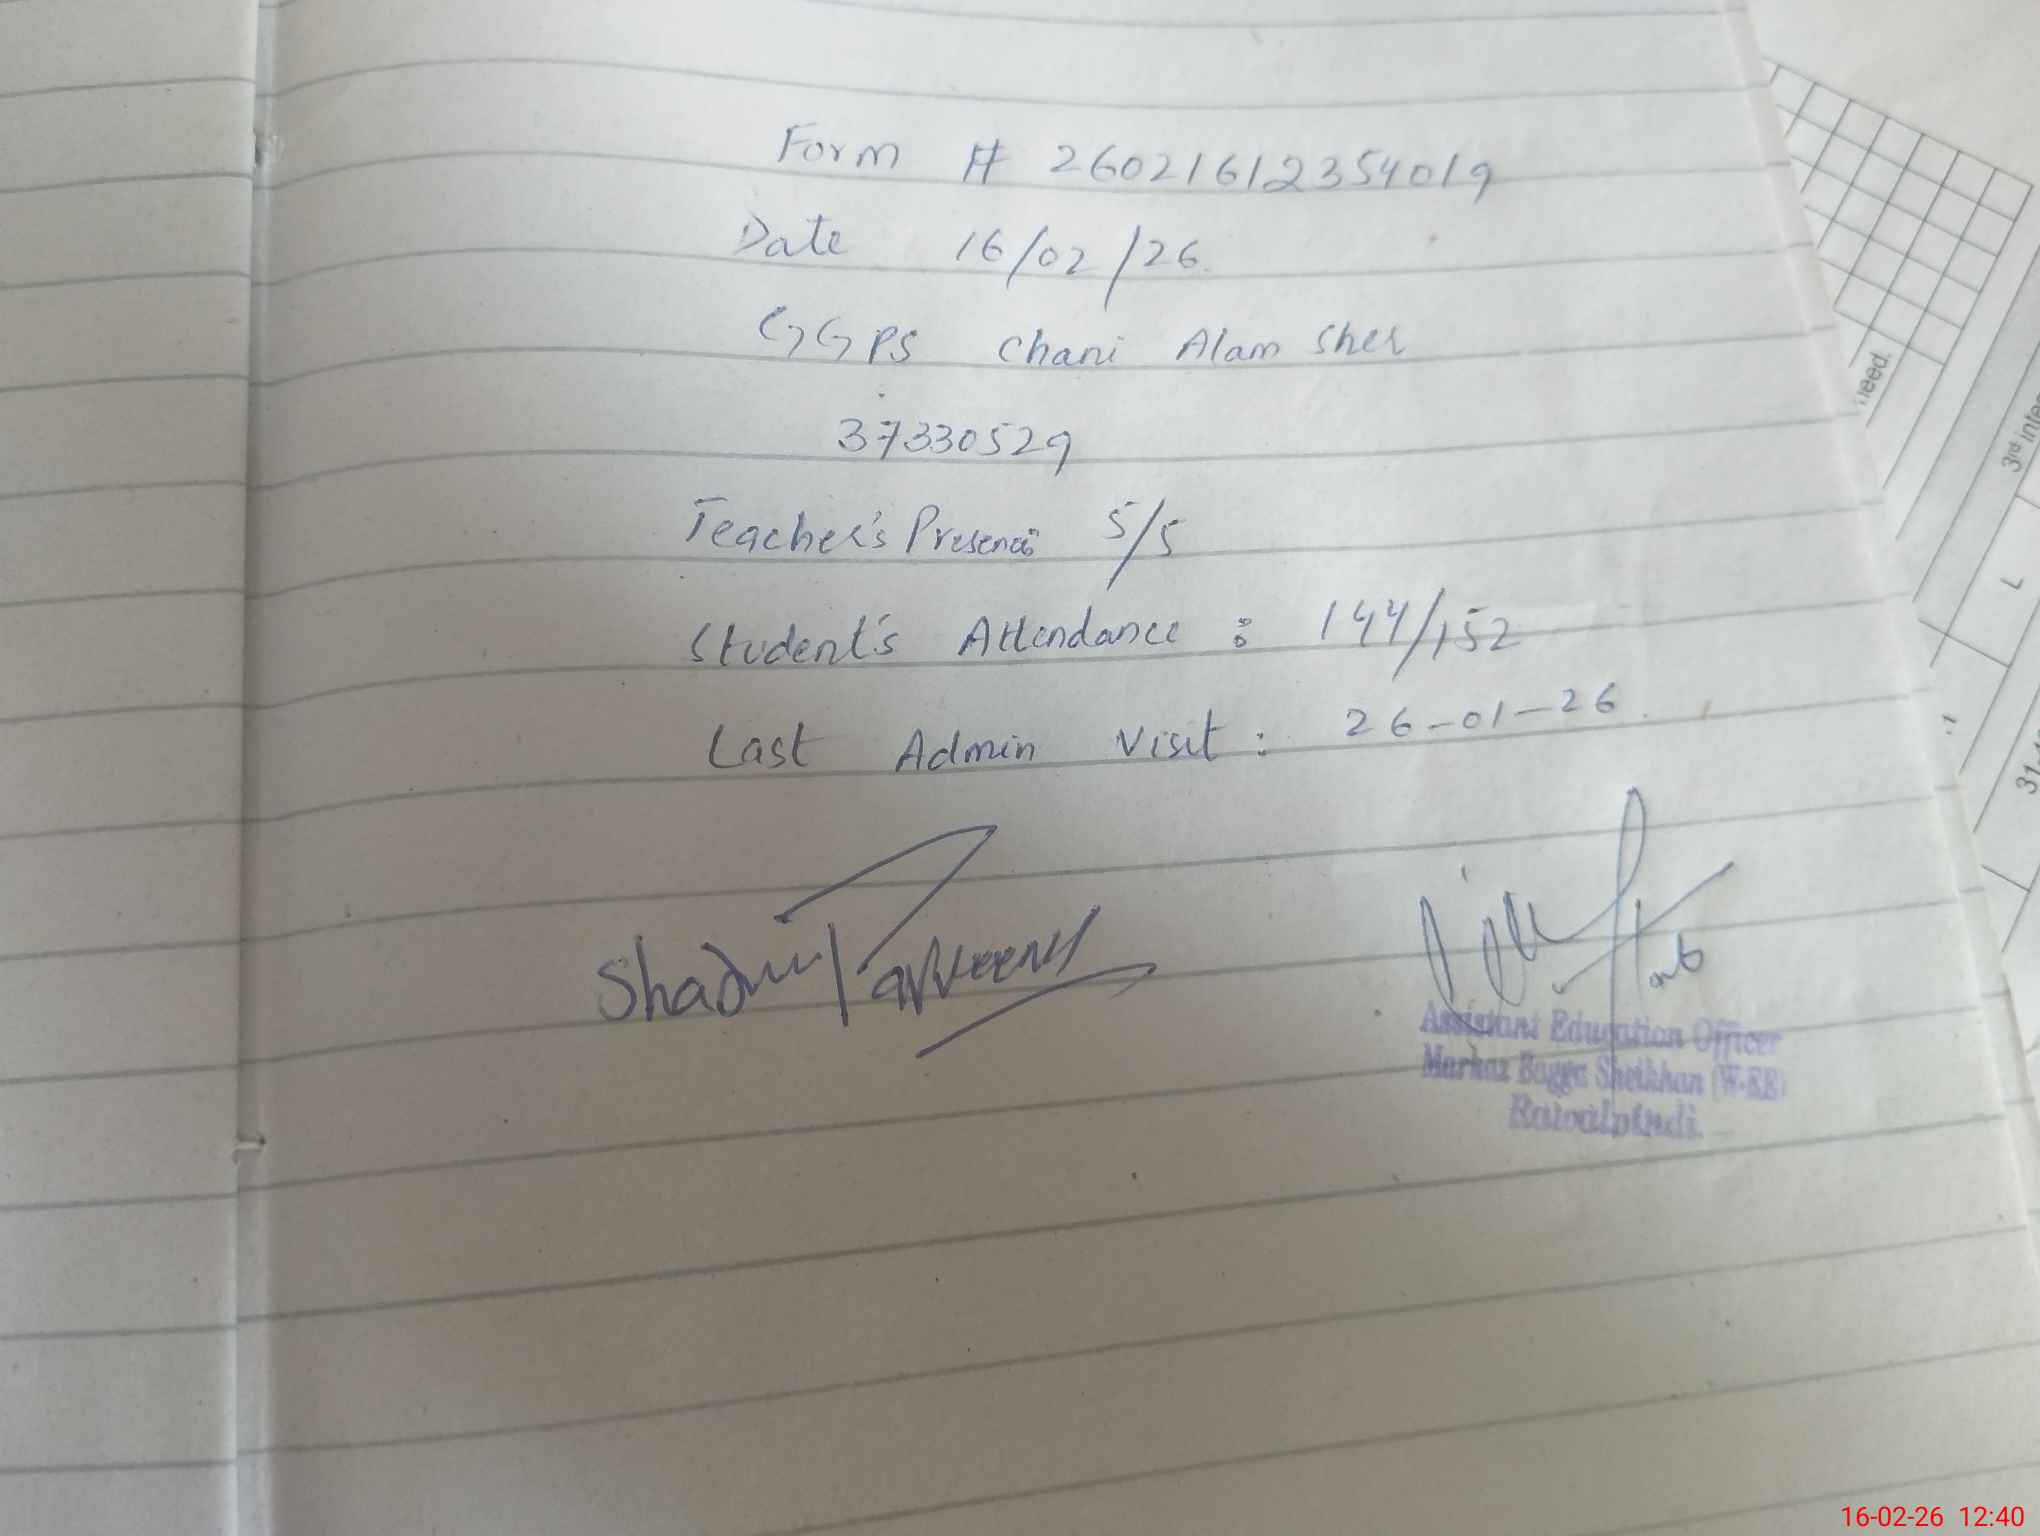 Form # 260216122354019
Date 16/02/26
GGPS Chani Alam Sher
37330529
Teacher's Presence 5/5
Student's Attendance : 144/152
Last Admin Visit : 26-01-26
Parveen
Assistant Education Officer
Markaz Bagga Sheikhan (W-EE)
Rawalpindi.
need.
3rd inte
L
31
16-02-26 12:40